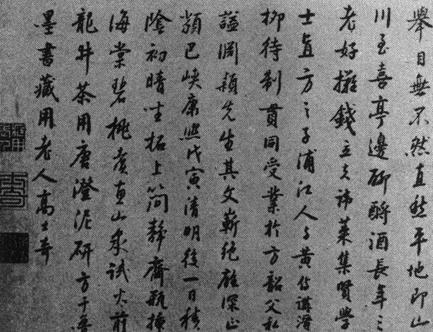 舉目無不然直愁平地即山
川至喜亭邊聊酹酒長年三
老好攤錢立夫諱萊集賢學
士直方之子浦江人與黃侍講溍
柳待制貫同受業於方韶父私
謚淵穎先生其文嶄絕雄深正
類巴峽康熙戊寅清明後一日積
陰初晴坐柘上簡靜齋瓶插
海棠碧桃煮惠山泉試火前
龍井茶用唐澄泥研方于魯
墨書藏用老人高士奇